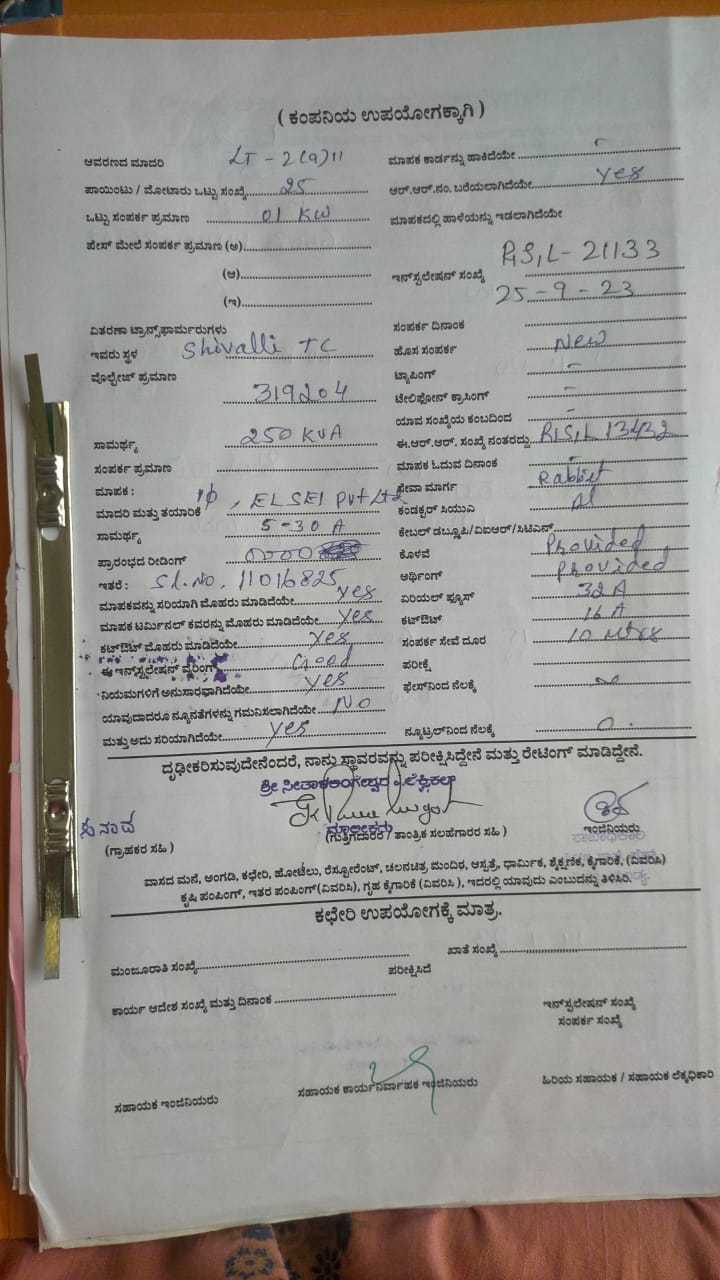 ( ಕಂಪನಿಯ ಉಪಯೋಗಕ್ಕಾಗಿ )
ಆವರಣದ ಮಾದರಿ LT - 2(a)11
ಪಾಯಿಂಟು / ಮೋಟಾರು ಒಟ್ಟು ಸಂಖ್ಯೆ 25
ಒಟ್ಟು ಸಂಪರ್ಕ ಪ್ರಮಾಣ 01 KW
ಫೇಸ್ ಮೇಲೆ ಸಂಪರ್ಕ ಪ್ರಮಾಣ (ಅ)
(ಆ)
(ಇ)
ವಿತರಣಾ ಟ್ರಾನ್ಸ್‌ಫಾರ್ಮರುಗಳು
ಇವರು ಸ್ಥಳ Shivalli TC
ವೊಲ್ಟೇಜ್ ಪ್ರಮಾಣ
319204
ಸಾಮರ್ಥ್ಯ 250 KVA
ಸಂಪರ್ಕ ಪ್ರಮಾಣ
ಮಾಪಕ :
ಮಾದರಿ ಮತ್ತು ತಯಾರಿಕೆ 1φ, ELSEI Pvt Ltd
ಸಾಮರ್ಥ್ಯ 5-30 A
ಪ್ರಾರಂಭದ ರೀಡಿಂಗ್
ಇತರೆ : Sl.No. 11016825
ಮಾಪಕವನ್ನು ಸರಿಯಾಗಿ ಮೊಹರು ಮಾಡಿದೆಯೇ yes
ಮಾಪಕ ಟರ್ಮಿನಲ್ ಕವರನ್ನು ಮೊಹರು ಮಾಡಿದೆಯೇ yes
ಕಟ್‌ಔಟ್ ಮೊಹರು ಮಾಡಿದೆಯೇ yes
ಈ ಇನ್‌ಸ್ಟಲೇಷನ್ ವೈರಿಂಗ್ Good
ನಿಯಮಗಳಿಗೆ ಅನುಸಾರವಾಗಿದೆಯೇ yes
ಯಾವುದಾದರೂ ನ್ಯೂನತೆಗಳನ್ನು ಗಮನಿಸಲಾಗಿದೆಯೇ No
ಮತ್ತು ಅದು ಸರಿಯಾಗಿದೆಯೇ yes
ಮಾಪಕ ಕಾರ್ಡನ್ನು ಹಾಕಿದೆಯೇ -
ಆರ್.ಆರ್.ನಂ. ಬರೆಯಲಾಗಿದೆಯೇ yes
ಮಾಪಕದಲ್ಲಿ ಹಾಳೆಯನ್ನು ಇಡಲಾಗಿದೆಯೇ
ಇನ್‌ಸ್ಟಲೇಷನ್ ಸಂಖ್ಯೆ RSL- 21133
25-9-23
ಸಂಪರ್ಕ ದಿನಾಂಕ
ಹೊಸ ಸಂಪರ್ಕ New
ಟ್ಯಾಪಿಂಗ್ -
ಟೇಲಿಫೋನ್ ಕ್ರಾಸಿಂಗ್ -
ಯಾವ ಸಂಖ್ಯೆಯ ಕಂಬದಿಂದ -
ಈ.ಆರ್.ಆರ್. ಸಂಖ್ಯೆ ನಂತರದ್ದು RSL 13432
ಮಾಪಕ ಓದುವ ದಿನಾಂಕ -
ಸೇವಾ ಮಾರ್ಗ Rabbiet
ಕಂಡಕ್ಟರ್ ಸಿಯುವಿ Al
ಕೇಬಲ್ ಡಬ್ಲೂಪಿ/ವಿಐಆರ್/ಸಿಟಿಎನ್
ಕೊಳವೆ Provided
ಅರ್ಥಿಂಗ್ Provided
ಏರಿಯಲ್ ಫ್ಯೂಸ್ 32 A
ಕಟ್‌ಔಟ್ 16 A
ಸಂಪರ್ಕ ಸೇವೆ ದೂರ 10 Mtrs
ಪರೀಕ್ಷೆ
ಫೇಸ್‌ನಿಂದ ನೆಲಕ್ಕೆ
ನ್ಯೂಟ್ರಲ್‌ನಿಂದ ನೆಲಕ್ಕೆ 0.
ದೃಢೀಕರಿಸುವುದೇನೆಂದರೆ, ನಾನು ಸ್ಥಾವರವನ್ನು ಪರೀಕ್ಷಿಸಿದ್ದೇನೆ ಮತ್ತು ರೇಟಿಂಗ್ ಮಾಡಿದ್ದೇನೆ.
ಮಾಲೀಕರು
(ಗ್ರಾಹಕರ ಸಹಿ)
(ಗುತ್ತಿಗೆದಾರರ / ತಾಂತ್ರಿಕ ಸಲಹೆಗಾರರ ಸಹಿ )
ಇಂಜಿನಿಯರು
ವಾಸದ ಮನೆ, ಅಂಗಡಿ, ಕಛೇರಿ, ಹೋಟೆಲು, ರೆಸ್ಟೋರೆಂಟ್, ಚಲನಚಿತ್ರ ಮಂದಿರ, ಆಸ್ಪತ್ರೆ, ಧಾರ್ಮಿಕ, ಶೈಕ್ಷಣಿಕ, ಕೈಗಾರಿಕೆ, (ವಿವರಿಸಿ)
ಕೃಷಿ ಪಂಪಿಂಗ್, ಇತರ ಪಂಪಿಂಗ್(ವಿವರಿಸಿ), ಗೃಹ ಕೈಗಾರಿಕೆ (ವಿವರಿಸಿ ), ಇದರಲ್ಲಿ ಯಾವುದು ಎಂಬುದನ್ನು ತಿಳಿಸಿರಿ.
ಕಛೇರಿ ಉಪಯೋಗಕ್ಕೆ ಮಾತ್ರ.
ಮಂಜೂರಾತಿ ಸಂಖ್ಯೆ
ಖಾತೆ ಸಂಖ್ಯೆ
ಪರೀಕ್ಷಿಸಿದೆ
ಕಾರ್ಯ ಆದೇಶ ಸಂಖ್ಯೆ ಮತ್ತು ದಿನಾಂಕ
ಇನ್‌ಸ್ಟಲೇಷನ್ ಸಂಖ್ಯೆ
ಸಂಪರ್ಕ ಸಂಖ್ಯೆ
ಸಹಾಯಕ ಇಂಜಿನಿಯರು
ಸಹಾಯಕ ಕಾರ್ಯನಿರ್ವಾಹಕ ಇಂಜಿನಿಯರು
ಹಿರಿಯ ಸಹಾಯಕ / ಸಹಾಯಕ ಲೆಕ್ಕಧಿಕಾರಿ